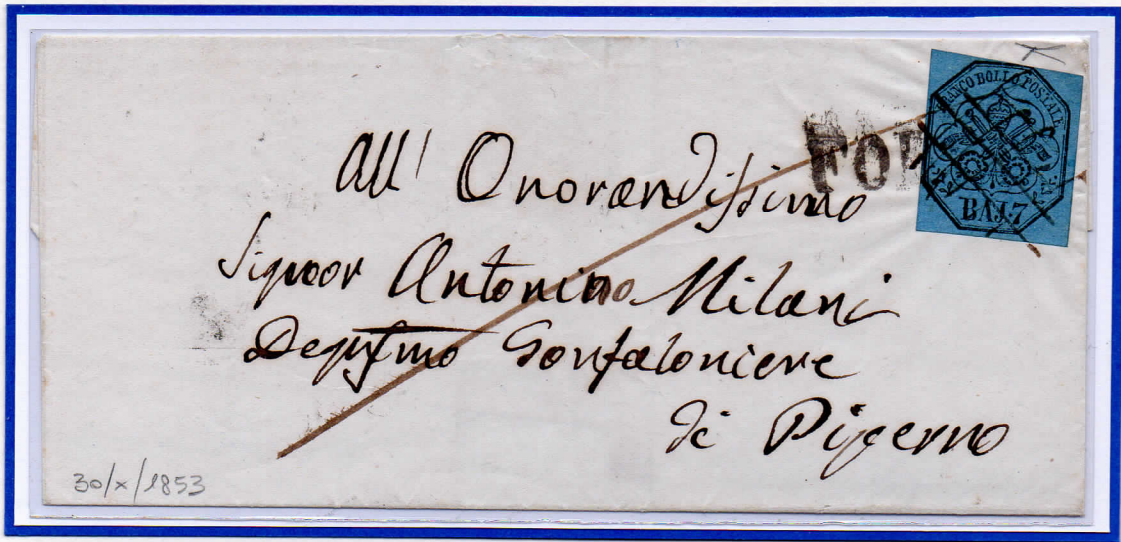 FRANCO BOLLO POSTALE
BAJ. 7
All' Onorandissimo
Signor Antonino Milani
Degnissmo Gonfaloniere
di Piperno
30/X/1853